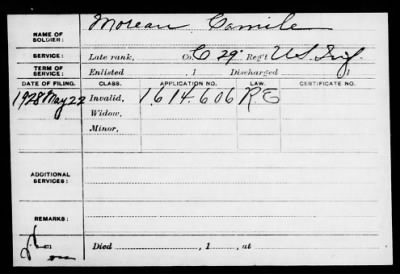 NAME OF SOLDIER: Moreau Camile
SERVICE: Late rank, Co. C 29 Reg't U.S. Inf.
TERM OF SERVICE: Enlisted , 1 Discharged , 1
DATE OF FILING. CLASS. APPLICATION NO. LAW. CERTIFICATE NO.
1928 May 22 Invalid, 1.614.606 R.E
Widow,
Minor,
ADDITIONAL SERVICES:
REMARKS:
Died , 1 , at